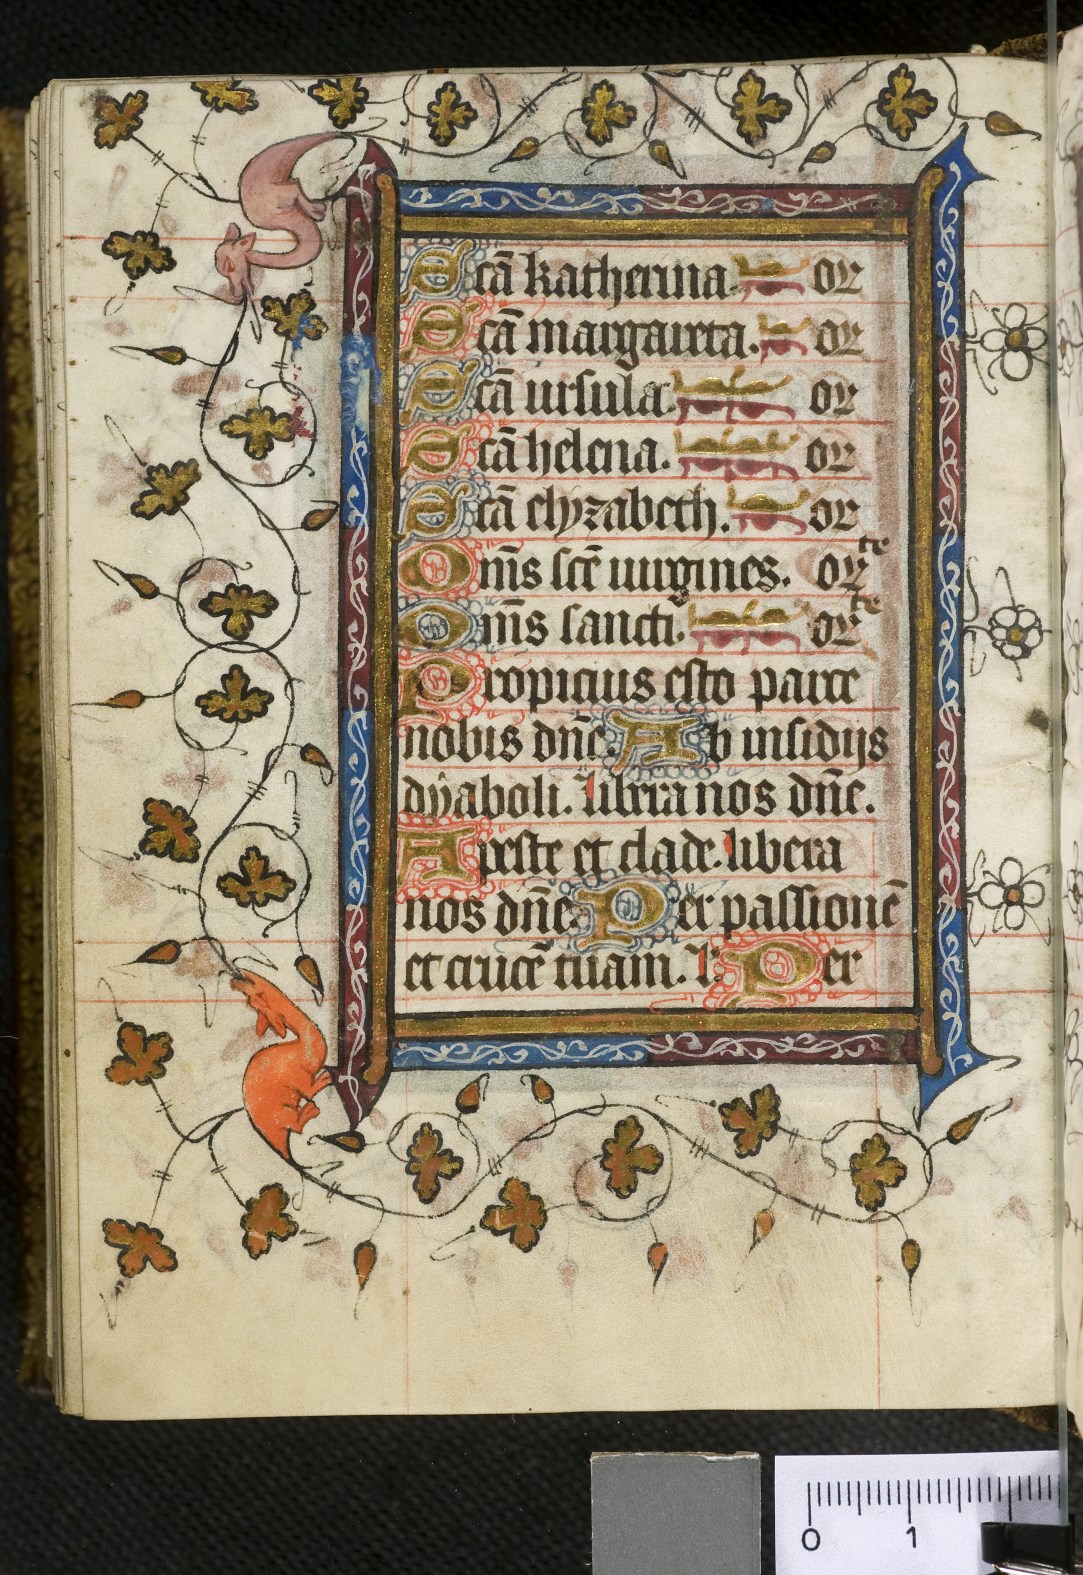 Scā katherina. or
Scā margareta. or
Scā ursula. or
Scā helena. or
Scā elyzabeth. or
Om̄s scē uirgines. orte
Om̄s sancti. orte
Propicius esto parce
nobis dn̄e. Ab insidijs
dyaboli. libera nos dn̄e.
A peste et clade. libera
nos dn̄e. Per passionē
et crucē tuam. l. Per
0 1